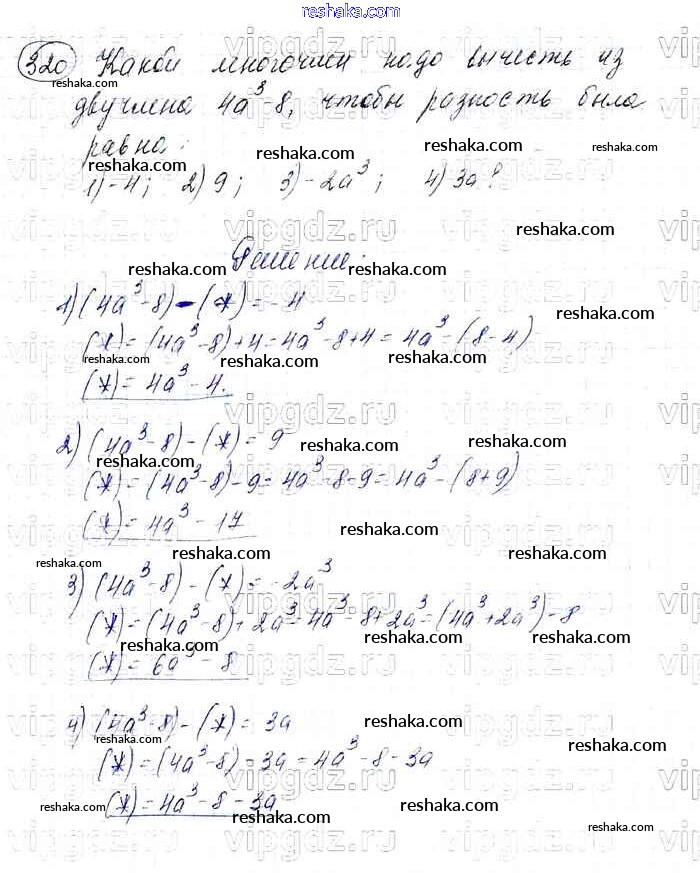 reshaka.com
320 Какой многочлен надо вычесть из
двучлена 4a³-8, чтобы разность была
равна:
1) -4; 2) 9; 3) -2a³; 4) 3a?
Решение:
1) (4a³-8) - (*) = -4
(*) = (4a³-8)+4 = 4a³-8+4 = 4a³-(8-4)
(*) = 4a³-4.
2) (4a³-8) - (*) = 9
(*) = (4a³-8)-9 = 4a³-8-9 = 4a³-(8+9)
(*) = 4a³-17
3) (4a³-8) - (*) = -2a³
(*) = (4a³-8)+2a³ = 4a³-8+2a³ = (4a³+2a³)-8
(*) = 6a³-8
4) (4a³-8) - (*) = 3a
(*) = (4a³-8) = 3a = 4a³-8-3a
(*) = 4a³-8-3a
vipgdz.ru
reshaka.com